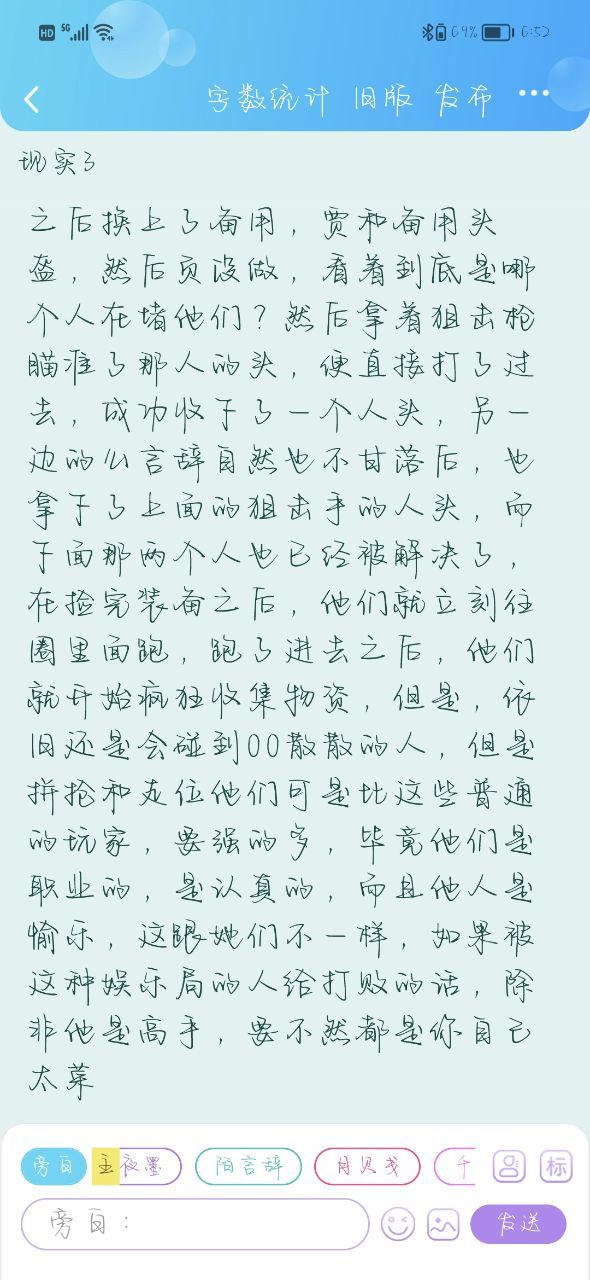 HD 5G 69% 6:52
字数统计 旧版 发布 ...
现实了
之后换上了备用，贾和备用头
盔，然后页没做，看着到底是哪
个人在堵他们？然后拿着狙击枪
瞄准了那人的头，便直接打了过
去，成功收下了一个人头，另一
边的么言辞自然也不甘落后，也
拿下了上面的狙击手的人头，而
下面那两个人也已经被解决了，
在捡完装备之后，他们就立刻往
圈里面跑，跑了进去之后，他们
就开始疯狂收集物资，但是，依
旧还是会碰到00散散的人，但是
拼抢和走位他们可是比这些普通
的玩家，要强的多，毕竟他们是
职业的，是认真的，而且他人是
愉乐，这跟她们不一样，如果被
这种娱乐局的人给打败的话，除
非他是高手，要不然都是你自己
太菜
旁白 主夜墨 陌言辞 月贝戋 千 标
旁白： 发送